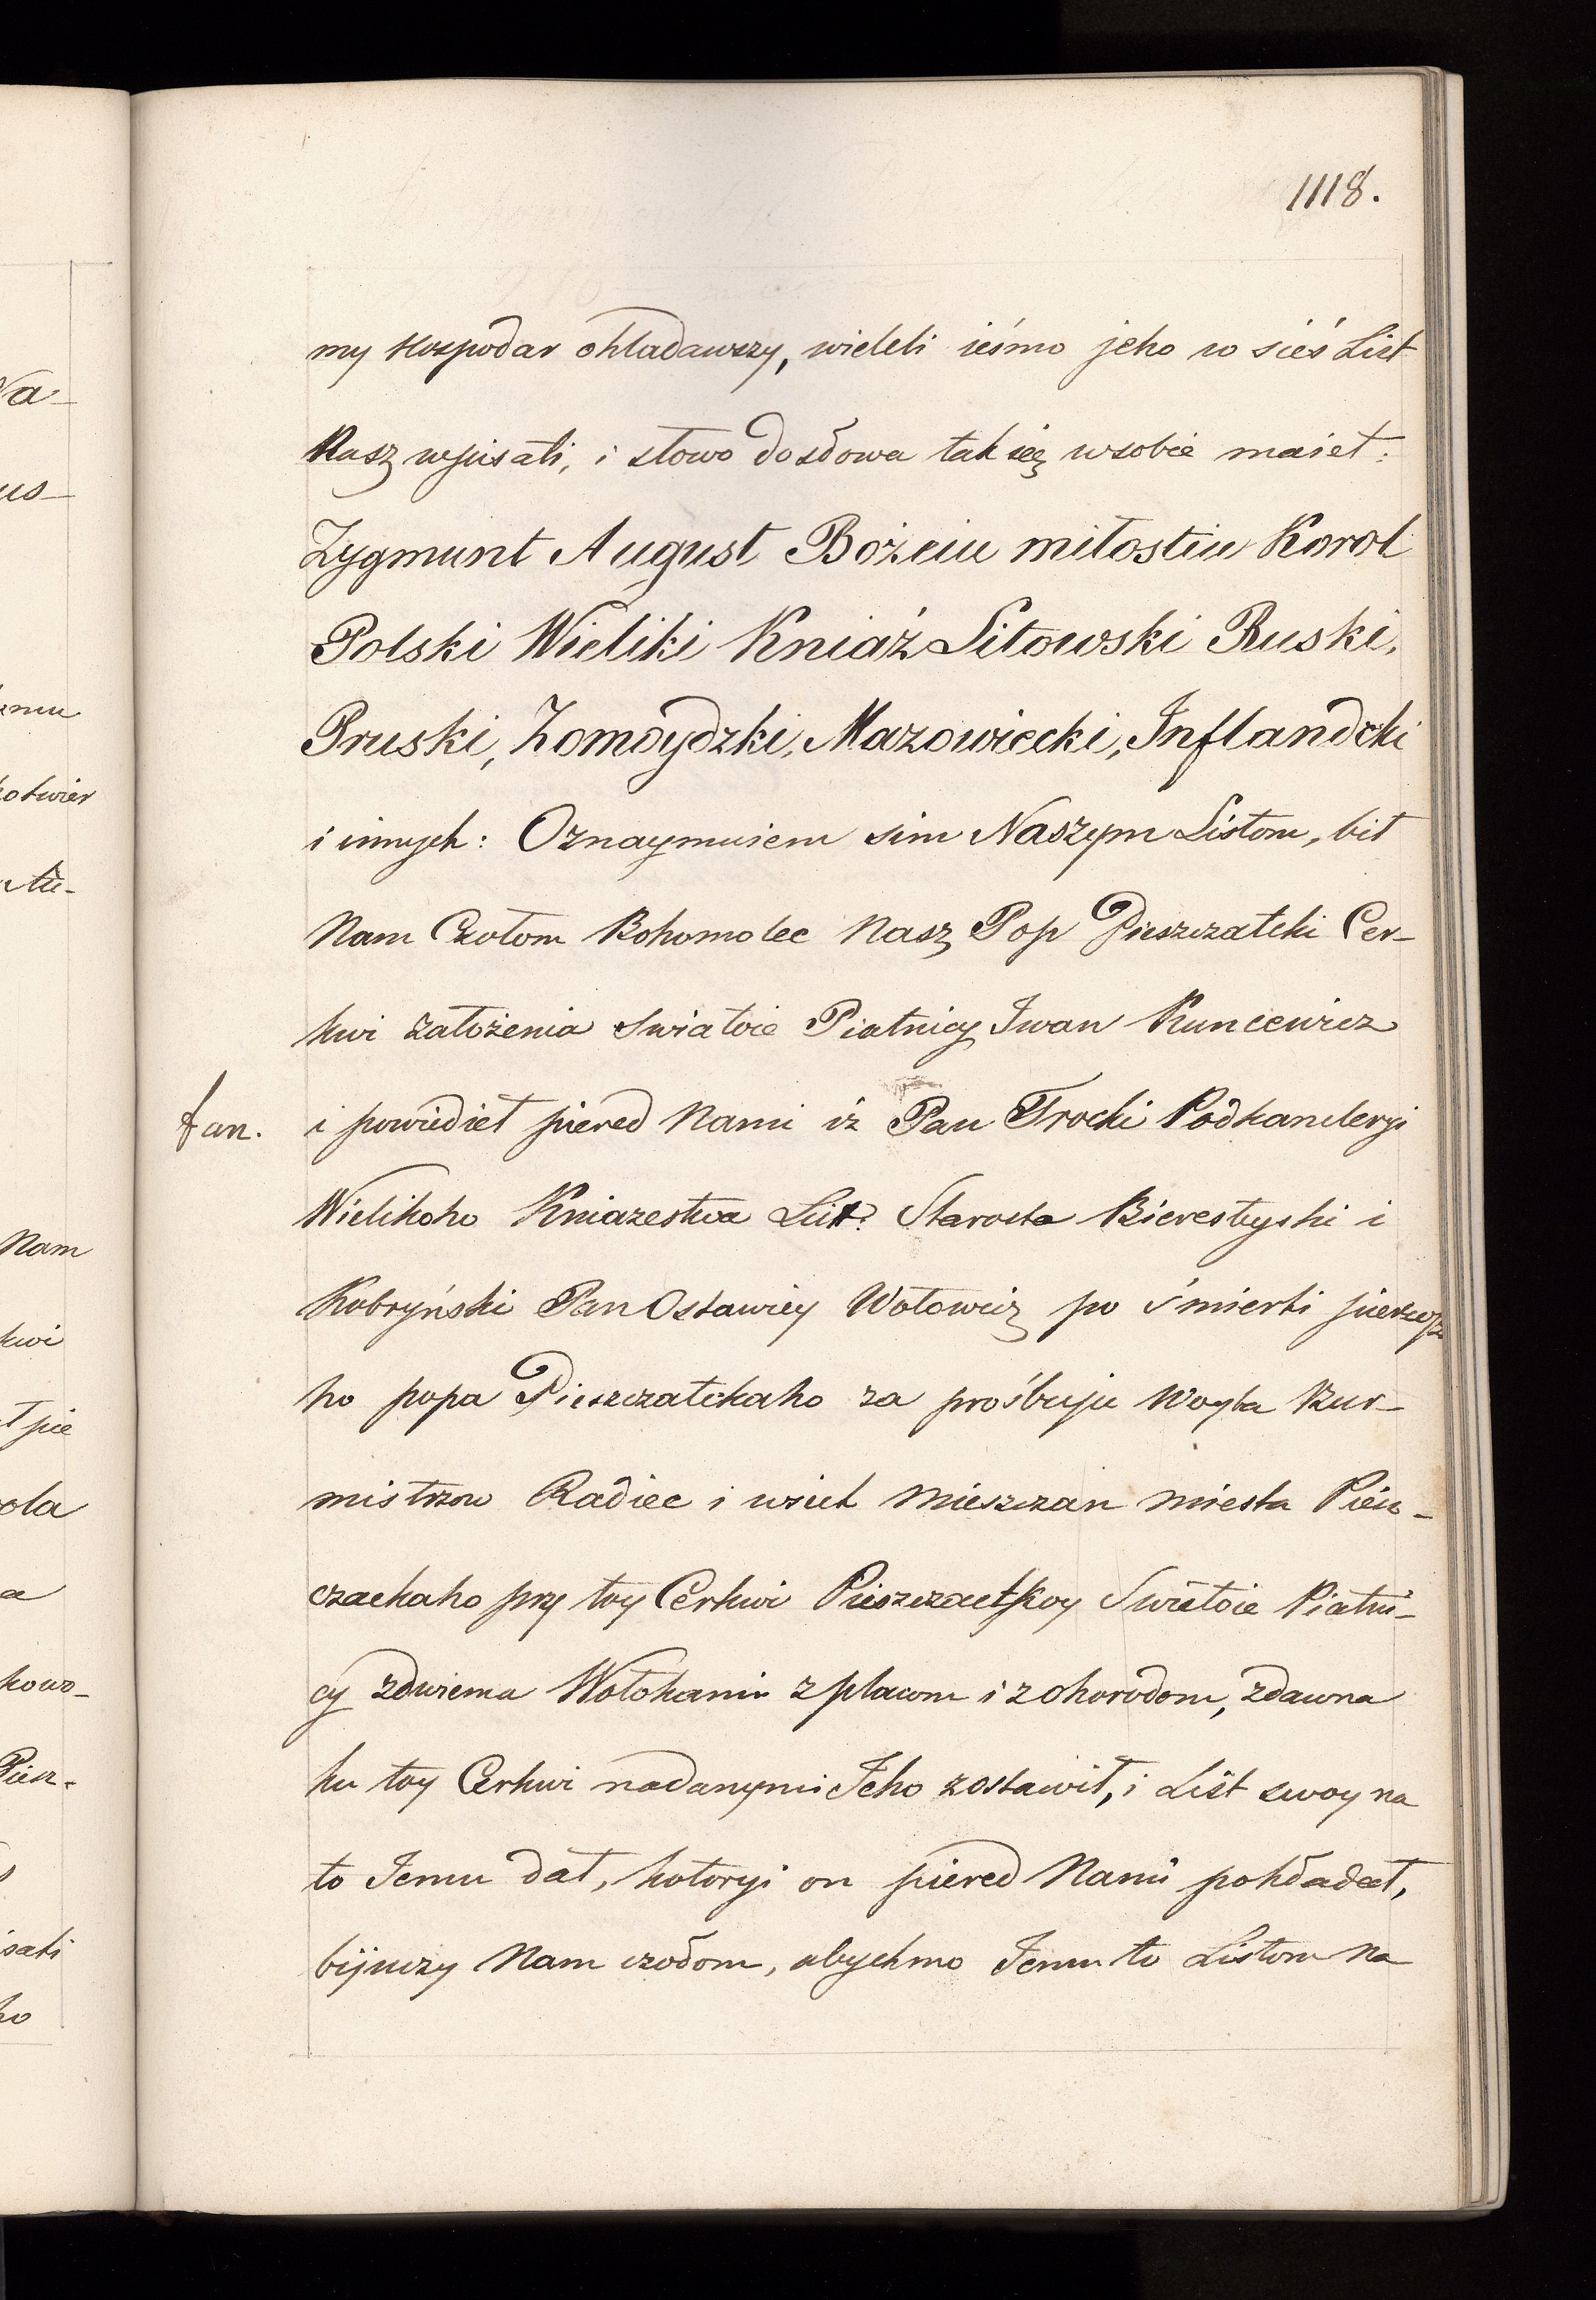 1118.
my Hospodar ohladawszy, wieleli ieśmo jeho w sieś List
Nasz wpisati, i słowo dosłowa tak się wsobie maiet:
Zygmunt August Bożeiu miłostiu Korol
Polski Wieliki Kniaź Litowski Ruski,
Pruski, Żomoydzki, Mazowiecki, Inflandzki
i innych: Oznaymuiem sim Naszym Listom, bił
Nam Czołom Bohomolec Nasz Pop Pieszczatcki Cer-
kwi założenia Swiatoie Piatnicy Iwan Kuncewicz
fan. i powiedieł piered Nami iż Pan Trocki Podkancleryi
Wielikoho Kniazestwa Lit: Starosta Bierestyski i
Kobryński Pan Ostawiey Wołowicz po śmierti
ho popa Pieszczatckaho za prośbuju Woyta Bur-
mistrzow Radiec i wsich Mieszczan miesta Piesz-
czackaho pry toy Cerkwi Pieszczactkoy Swietoie Piatni-
cy zdwiema Wołokami z placom i z ohorodom, zdawna
ku toy Cerkwi nadanymi Jeho zostawił, i List swoy na
to Iemu dał, kotoryi on piered Nami pokładał,
bijuczy Nam czołom, abychmo Iemu to Listom Na
Na-
us-
emu
potwier
Nam
kwi
ł pie
ola
a
kowo-
Piesz-
isati
ho